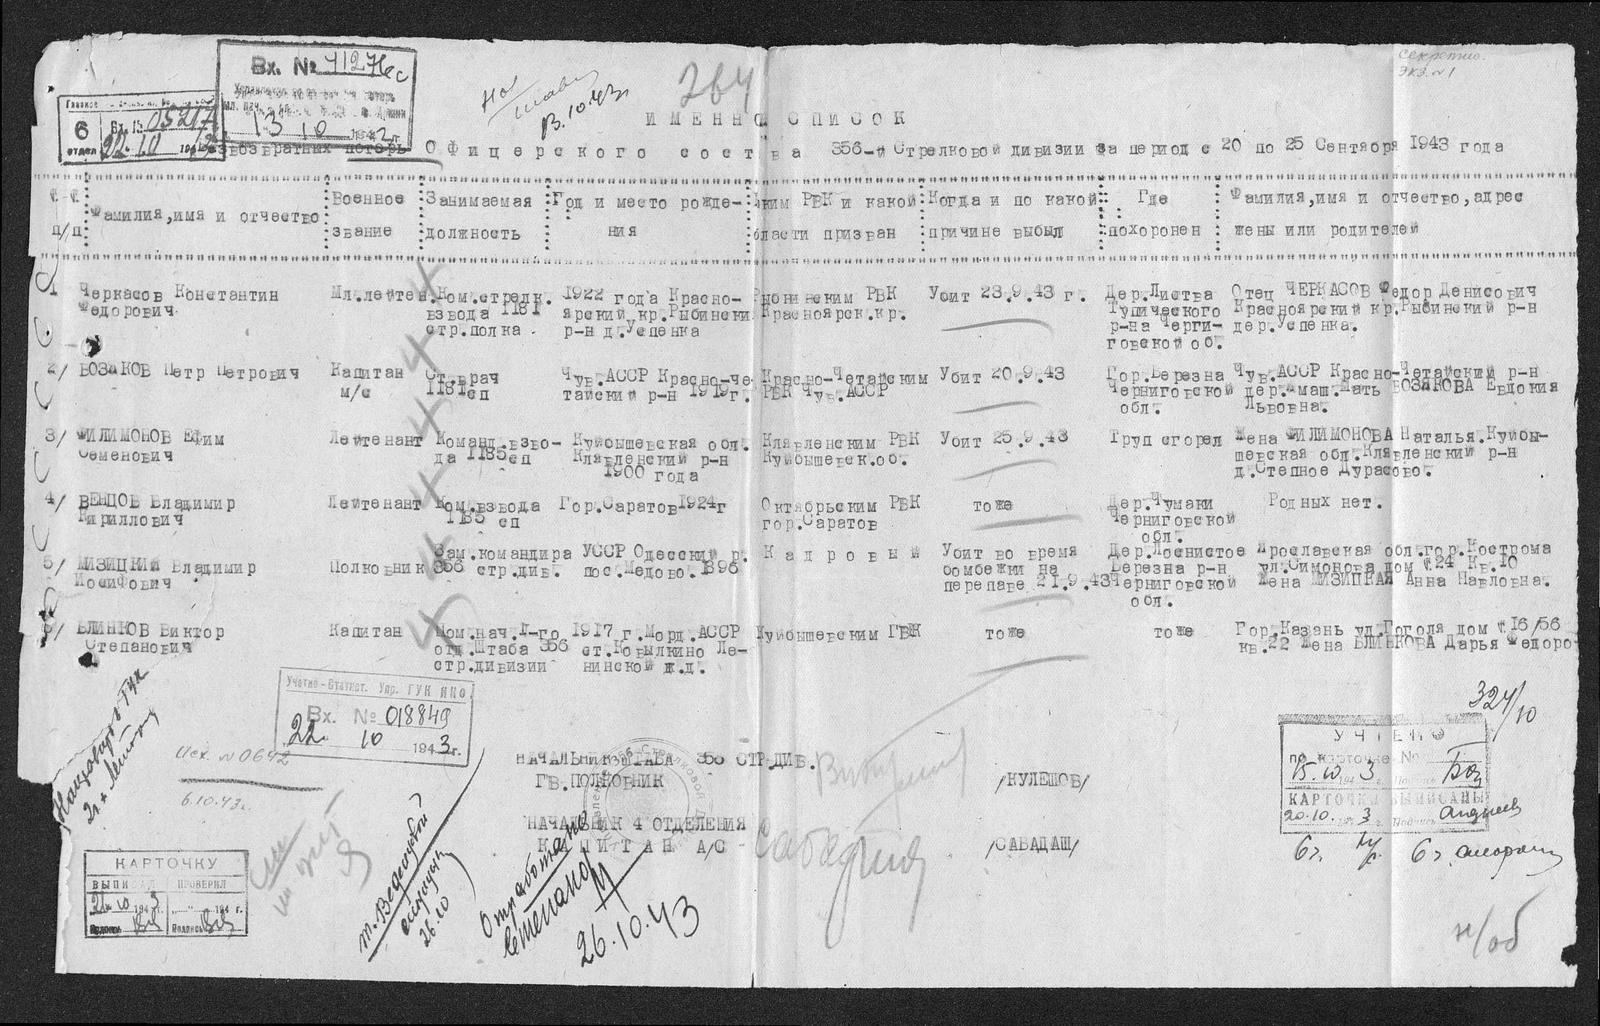 Секретно.
экз. №1
Вх. №
13 10 1943 г.
Главное
6 отдел
Вх. №
22 10 194
264
13.10.43
ИМЕННО СПИСОК
безвозвратных потерь Офицерского состава 356-й Стрелковой дивизии за период с 20 по 25 Сентября 1943 года
п/п
Фамилия, имя и отчество
Военное звание
Занимаемая должность
Год и место рожде-
ния
ким РВК и какой
бласти призван
Когда и по какой
причине выбыл
Где
похоронен
Фамилия, имя и отчество, адрес
жены или родителей
1 Черкасов Константин
Федорович
Мл.лейтен.
Ком.стрелк.
взвода 1181
стр.полка
1922 года Красно-
ярский кр.Рыбински
р-н д.Успенка
Рыбинским РВК
Красноярск.кр.
Убит 23.9.43 г.
Дер.Листва
Тупического
р-на Черги-
говской об.
Отец ЧЕРКАСОВ Федор Денисович
Красноярский кр.Рыбинский р-н
дер.Успенка.
2/ ВОЗЯКОВ Петр Петрович
Капитан
м/с
Ст.врач
1181сп
Чув.АССР Красно-че
тайский р-н 1919г.
Красно-Четайским
РВК Чув.АССР
Убит 20.9.43
Гор.Березна
Черниговской
обл.
Чув.АССР Красно-Четайский р-н
дер.маш.Мать ВОЗЯКОВА Евдокия
Львовна.
3/ ФИЛИМОНОВ Ефим
Семенович
Лейтенант
Команд.взво-
да 1185сп
Куйбышевская обл.
Клявленский р-н
1900 года
Клявленским РВК
Куйбышевск.об.
Убит 25.9.43
Труп сгорел
Жена ФИЛИМОНОВА Наталья.Куйбы-
шевская обл.Клявленский р-н
д.Степное Дурасово.
4/ ВЕНЦОВ Владимир
Кириллович
Лейтенант
Ком.взвода
1185 сп
Гор.Саратов 1924г
Октябрьским РВК
гор.Саратов
тоже
Дер.Чумаки
Черниговской
обл.
Родных нет.
5/ МИЗИЦКИЙ Владимир
Иосифович
Полковник
Зам.командира
356 стр.див.
УССР Одесский р.
пос.Медово.1896
Кадровый
Убит во время
бомбежки на
перепаве 21.9.43
Дер.Лоснистое
Березна р-н
Черниговской
обл.
Ярославская обл.гор.Кострома
ул.Симонова дом №24 Кв.10
Жена МИЗИЦКАЯ Анна Павловна.
6/ БЛИНКОВ Виктор
Степанович
Капитан
Пом.нач.1-го
отд.Штаба 356
стр.дивизии
1917 г.Морд.АССР
ст.Ковылкино Ле-
нинской ж.д.
Куйбышевским ГВК
тоже
тоже
Гор.Казань ул.Гоголя дом №16/56
кв.22 Жена БЛИНКОВА Дарья Федоро
Учетно-Статист. Упр. ГУК НКО
Вх. № 018849
22 10 1943 г.
Исх. №0642
6.10.43 г.
324/10
НАЧАЛЬНИК ШТАБА 356 СТР.ДИВ.
ГВ.ПОЛКОВНИК
/КУЛЕШОВ/
НАЧАЛЬНИК 4 ОТДЕЛЕНИЯ
КАПИТАН А/С
/САВАДАШ/
УЧТЕНО
по карточке №
15.10 1943 Подпись
КАРТОЧКА ВЫПИСАНЫ
20.10. 1943 Подпись
КАРТОЧКУ
ВЫПИСАЛ ПРОВЕРИЛ
21.10 1943 г. „ “ 194 г.
Подпись Подпись
26.10
Отработано
Степанов
26.10.43
н/об